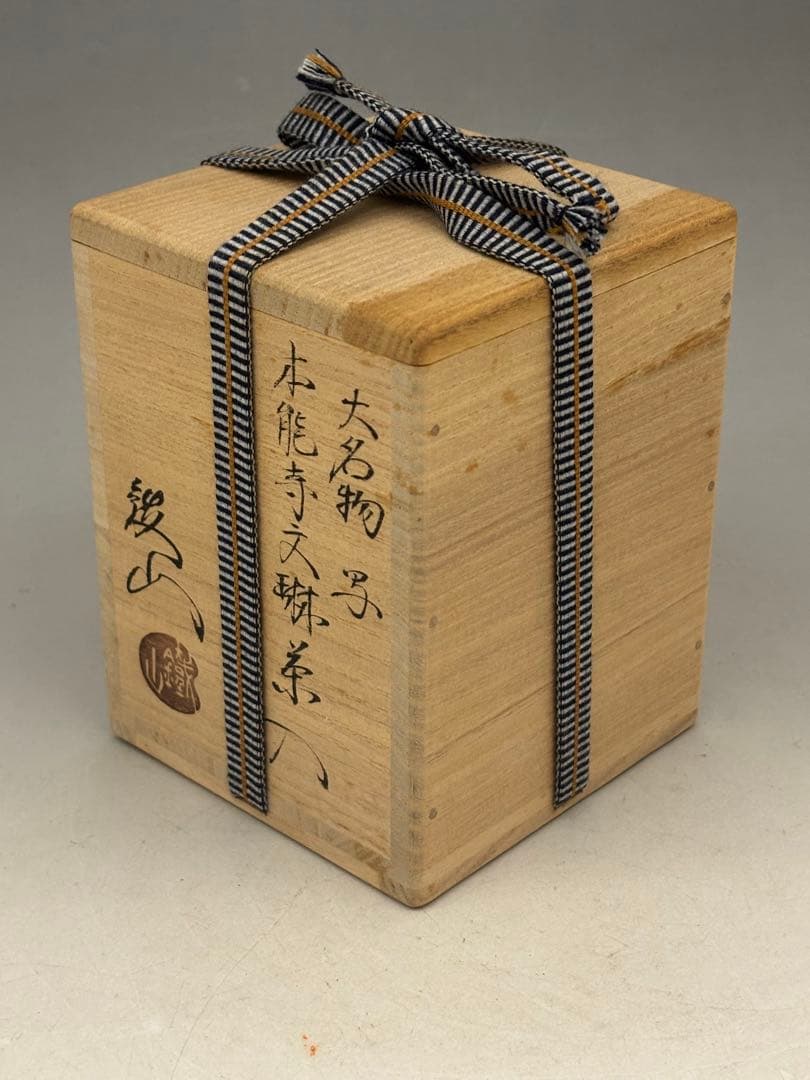 大名物 写
本能寺文琳茶入
鐵山
鐵山